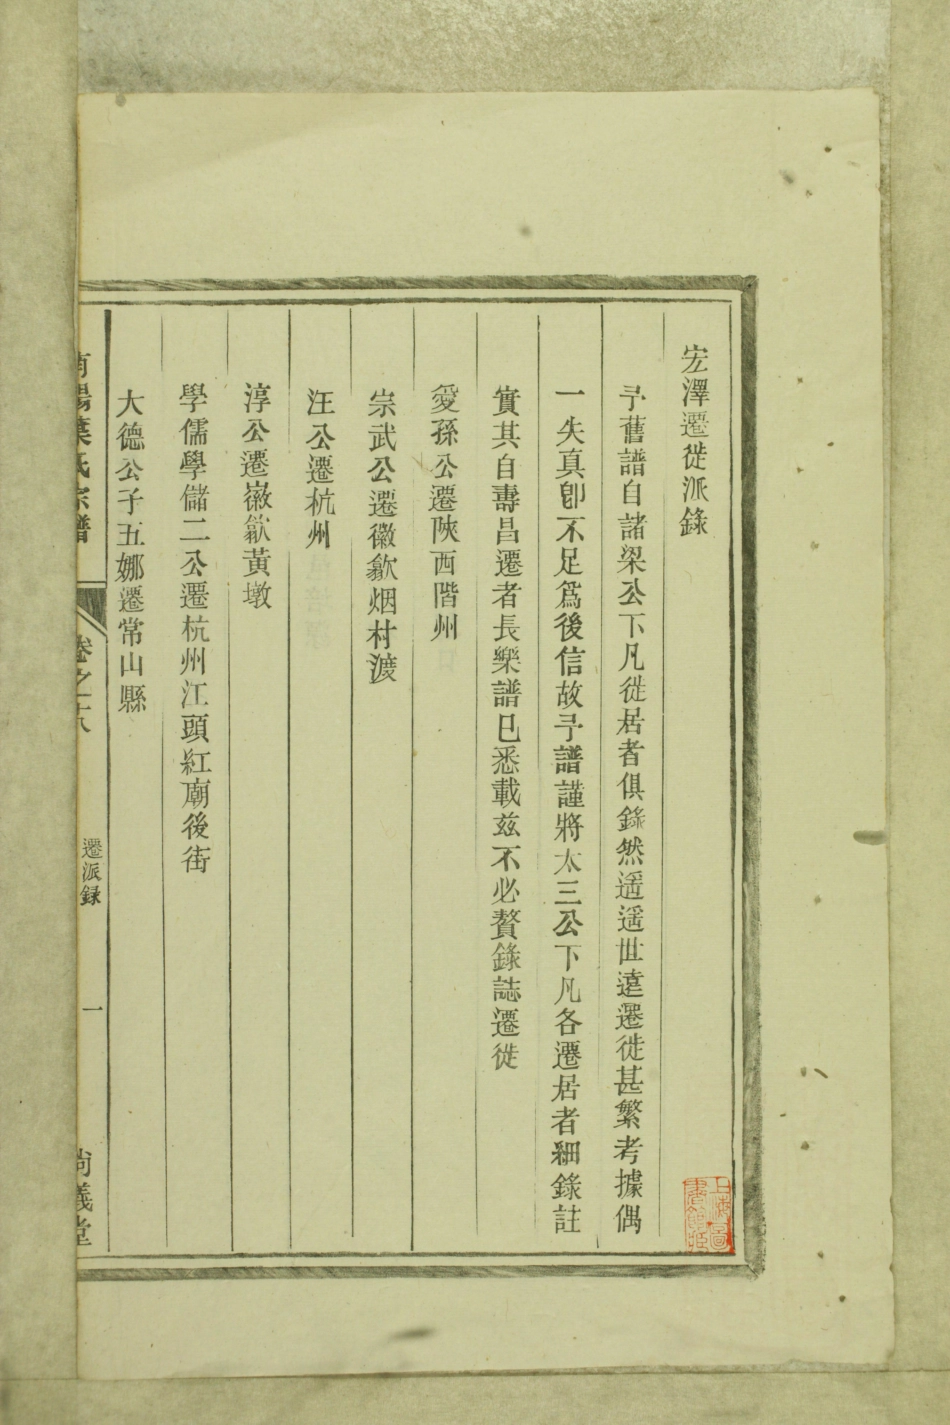 宏澤遷徙派錄
予舊譜自諸梁公下凡徙居者俱錄然遥遥世遠遷徙甚繁考據偶
一失真卽不足爲後信故予譜謹將太三公下凡各遷居者細錄註
實其自壽昌遷者長樂譜已悉載兹不必贅錄誌遷徙
愛孫公遷陝西階州
宗武公遷徽歙烟村渡
汪公遷杭州
淳公遷徽歙黃墩
學儒學儲二公遷杭州江頭紅廟後街
大德公子五娜遷常山縣
南陽葉氏宗譜
卷之十八
遷派録
一
尙義堂
上海圖書館藏